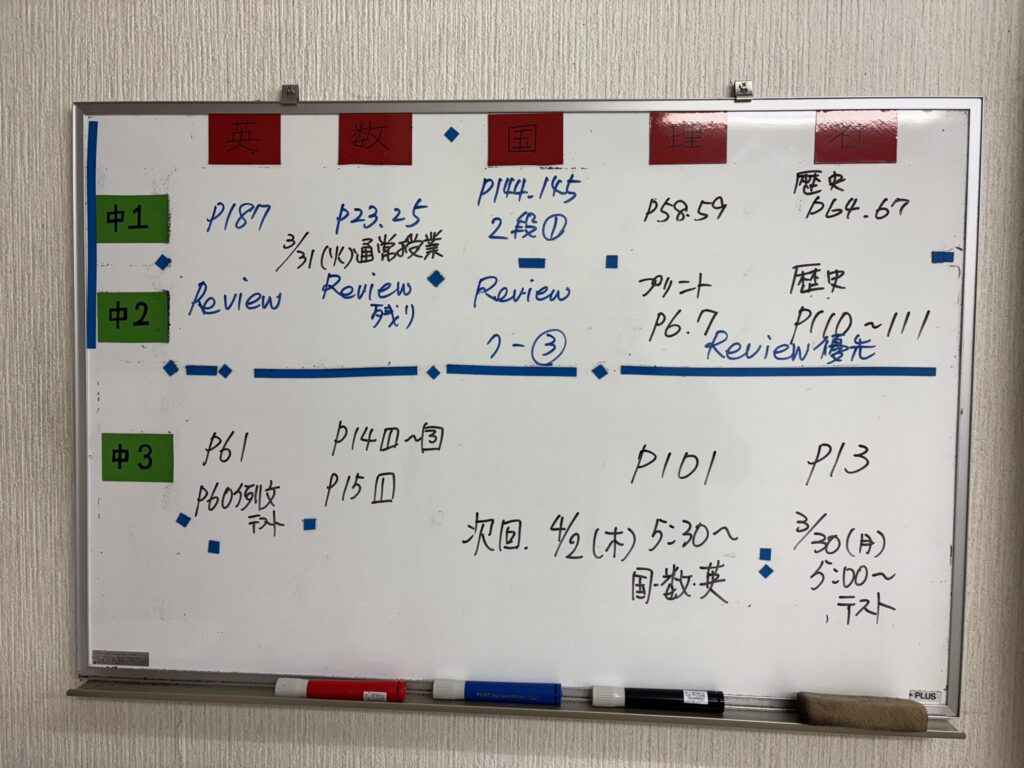 英 数 国 理 社
中1 P187 P23.25 P144.145 P58.59 歴史
2段① P64.67
3/31(火)通常授業
中2 Review Review Review プリント 歴史
残り ワー③ P6.7 P110～111
Review 優先
中3 P61 P14 1～3 P101 P13
P60例文 P15 1
テスト
次回. 4/2(木) 5:30～ 3/30(月)
国・数・英 5:00～
テスト
PLUS
PILOT